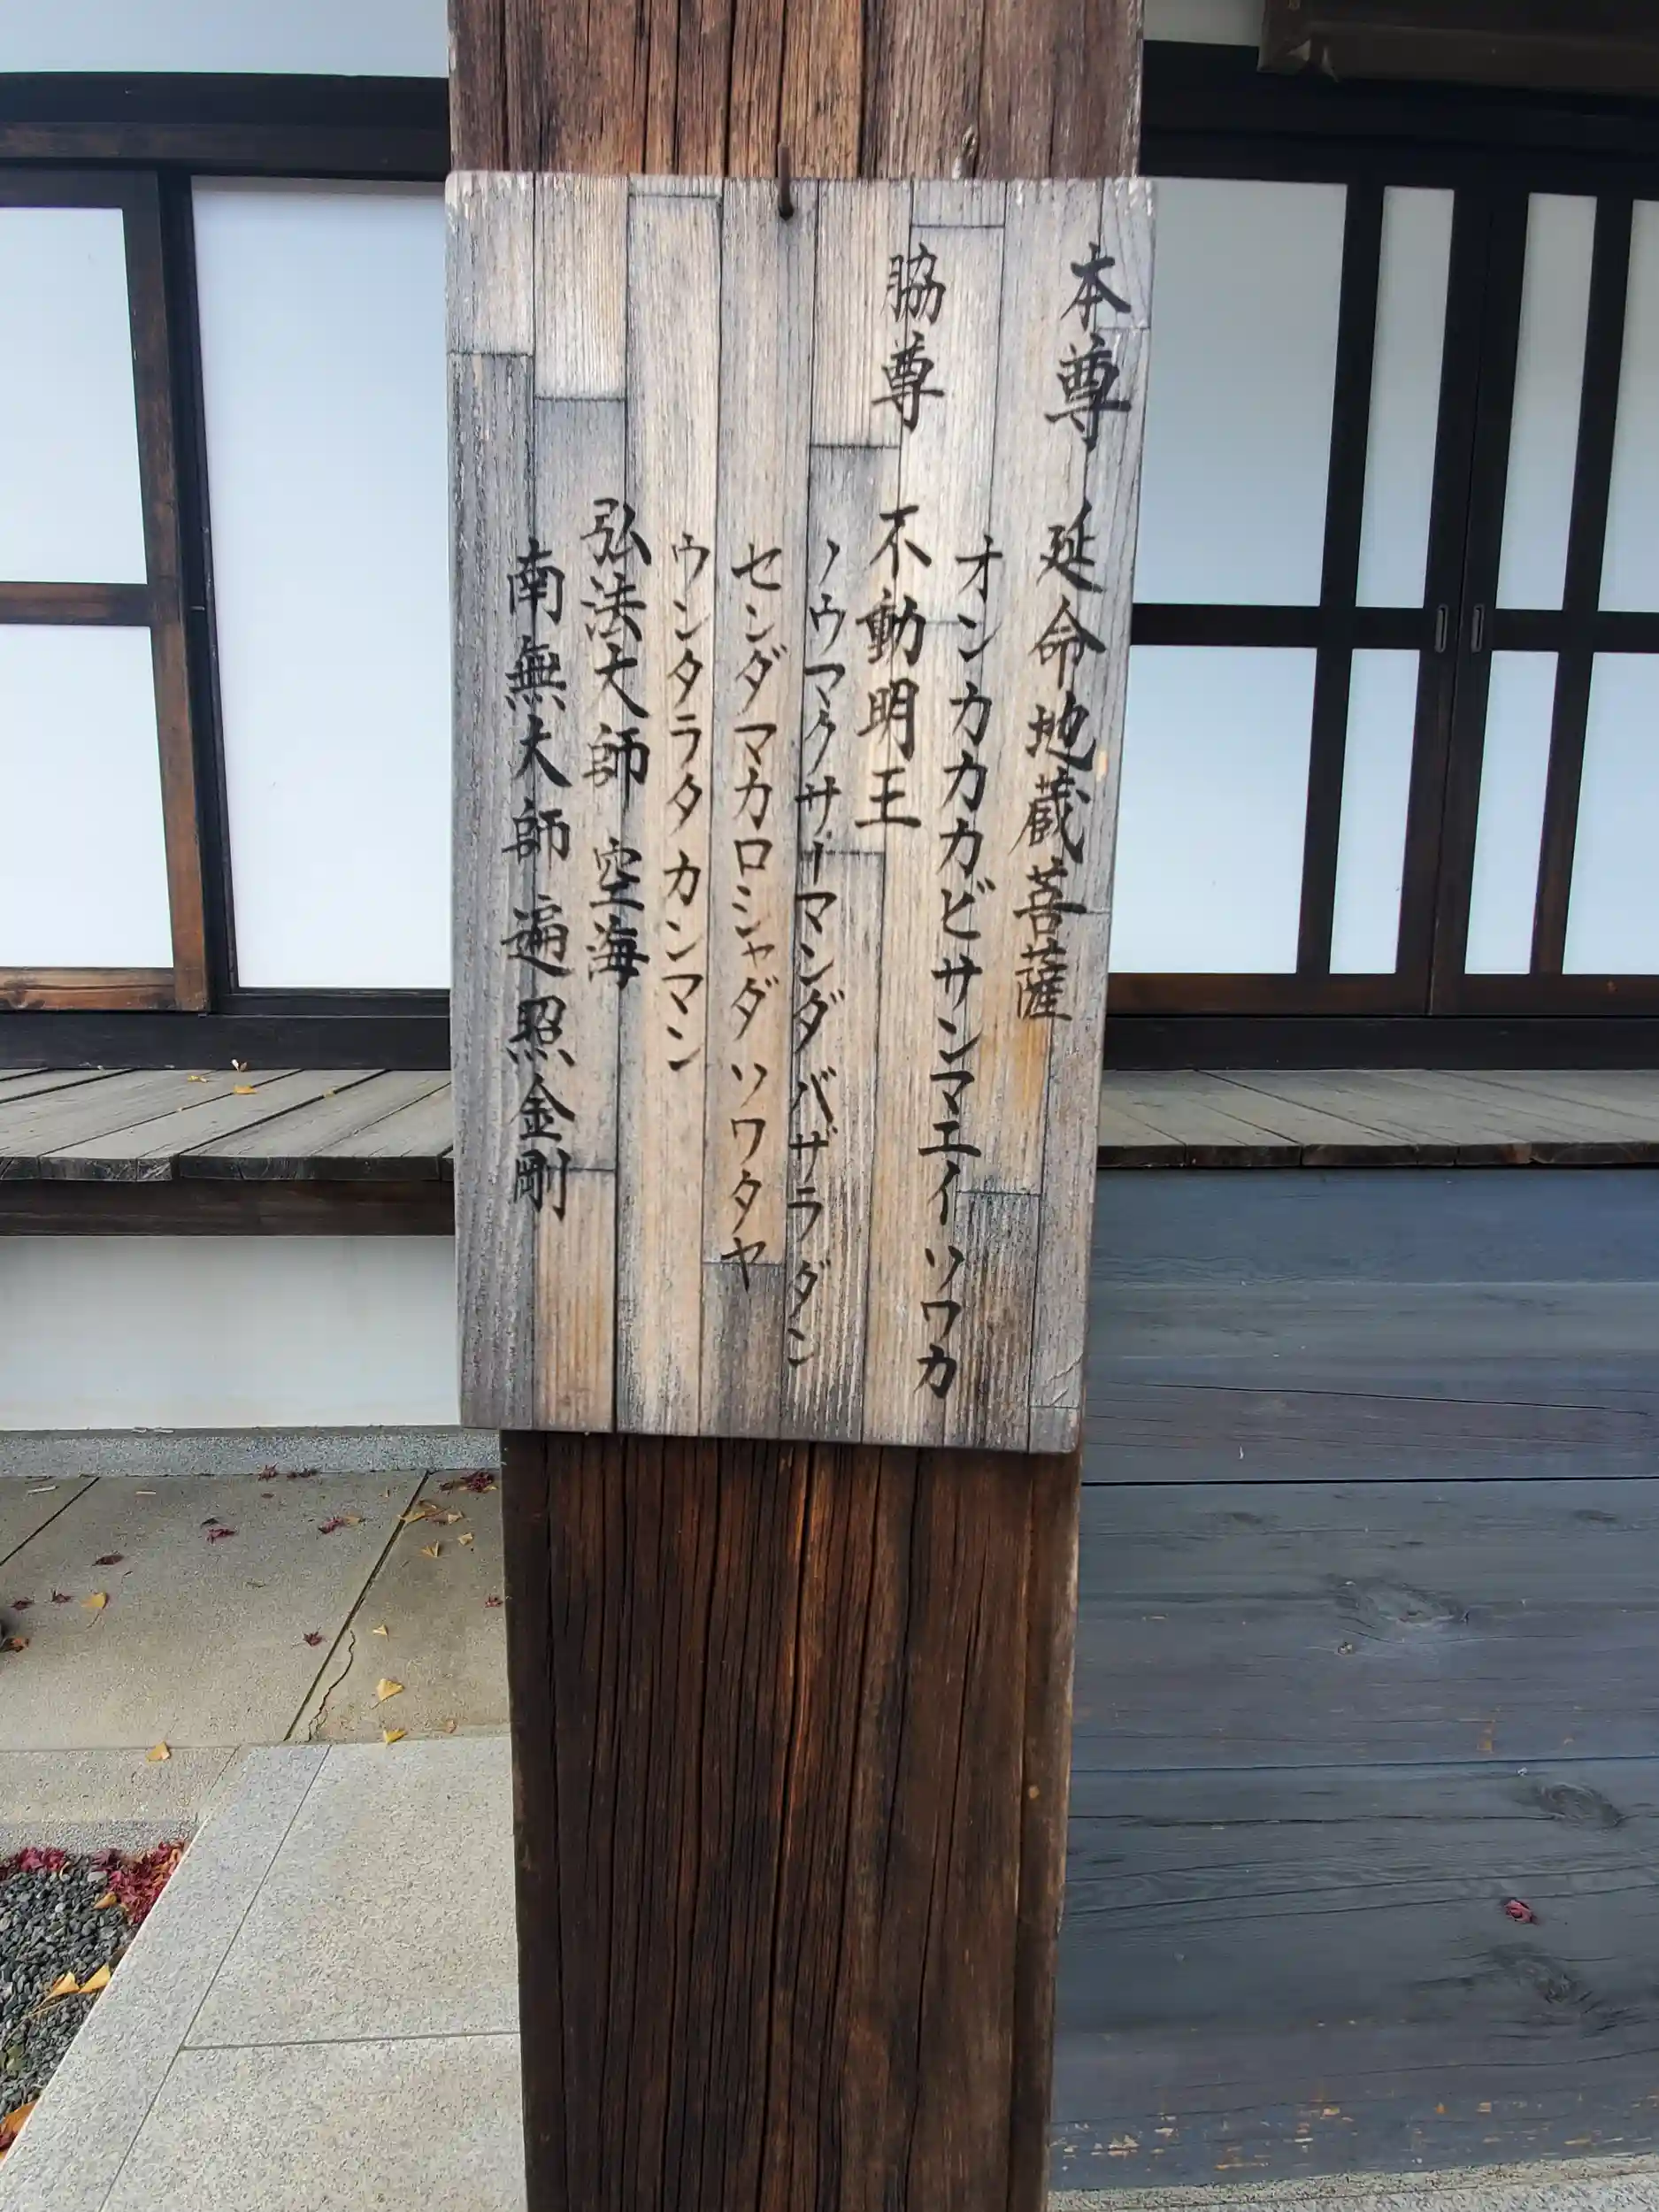 本尊 延命地蔵菩薩
オンカカカビサンマエイソワカ
脇尊 不動明王
ノウマクサーマンダバザラダン
センダマカロシャダソワタヤ
ウンタラタカンマン
弘法大師空海
南無大師遍照金剛